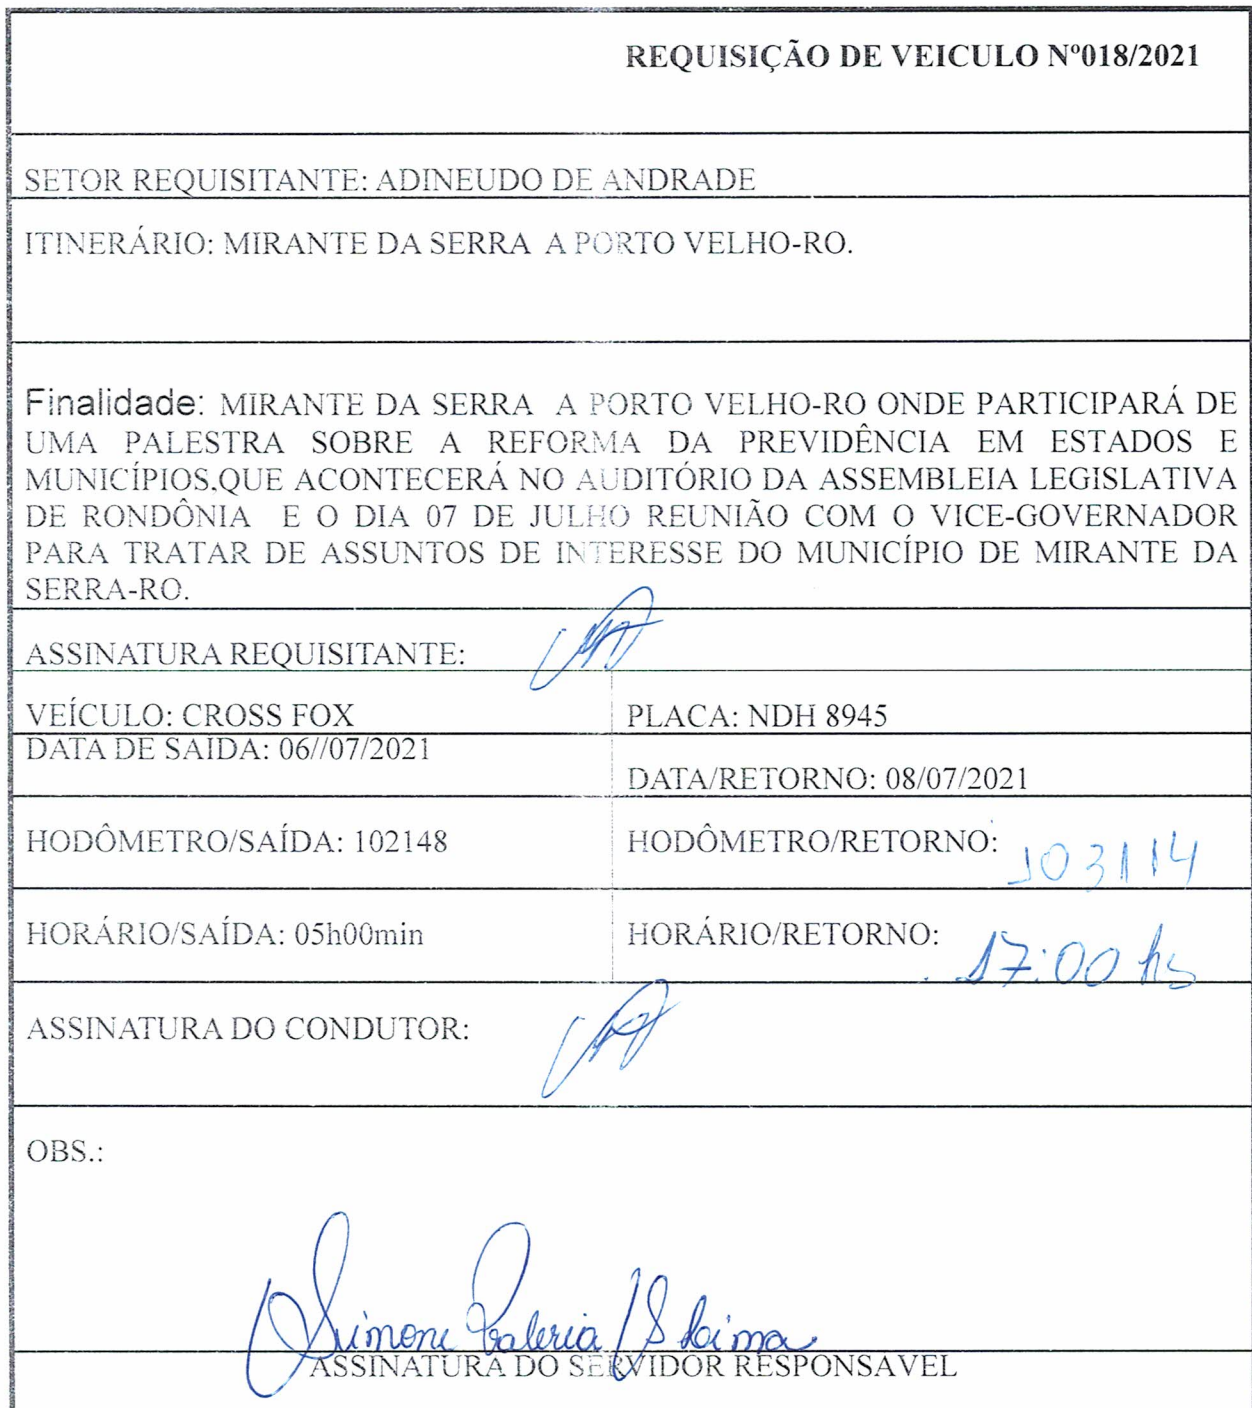 REQUISIÇÃO DE VEICULO Nº018/2021
SETOR REQUISITANTE: ADINEUDO DE ANDRADE
ITINERÁRIO: MIRANTE DA SERRA A PORTO VELHO-RO.
Finalidade: MIRANTE DA SERRA A PORTO VELHO-RO ONDE PARTICIPARÁ DE
UMA PALESTRA SOBRE A REFORMA DA PREVIDÊNCIA EM ESTADOS E
MUNICÍPIOS,QUE ACONTECERÁ NO AUDITÓRIO DA ASSEMBLEIA LEGISLATIVA
DE RONDÔNIA E O DIA 07 DE JULHO REUNIÃO COM O VICE-GOVERNADOR
PARA TRATAR DE ASSUNTOS DE INTERESSE DO MUNICÍPIO DE MIRANTE DA
SERRA-RO.
ASSINATURA REQUISITANTE:
VEÍCULO: CROSS FOX
PLACA: NDH 8945
DATA DE SAIDA: 06//07/2021
DATA/RETORNO: 08/07/2021
HODÔMETRO/SAÍDA: 102148
HODÔMETRO/RETORNO: 103114
HORÁRIO/SAÍDA: 05h00min
HORÁRIO/RETORNO: 17:00 hs
ASSINATURA DO CONDUTOR:
OBS.:
Simone
ASSINATURA DO SERVIDOR RESPONSAVEL